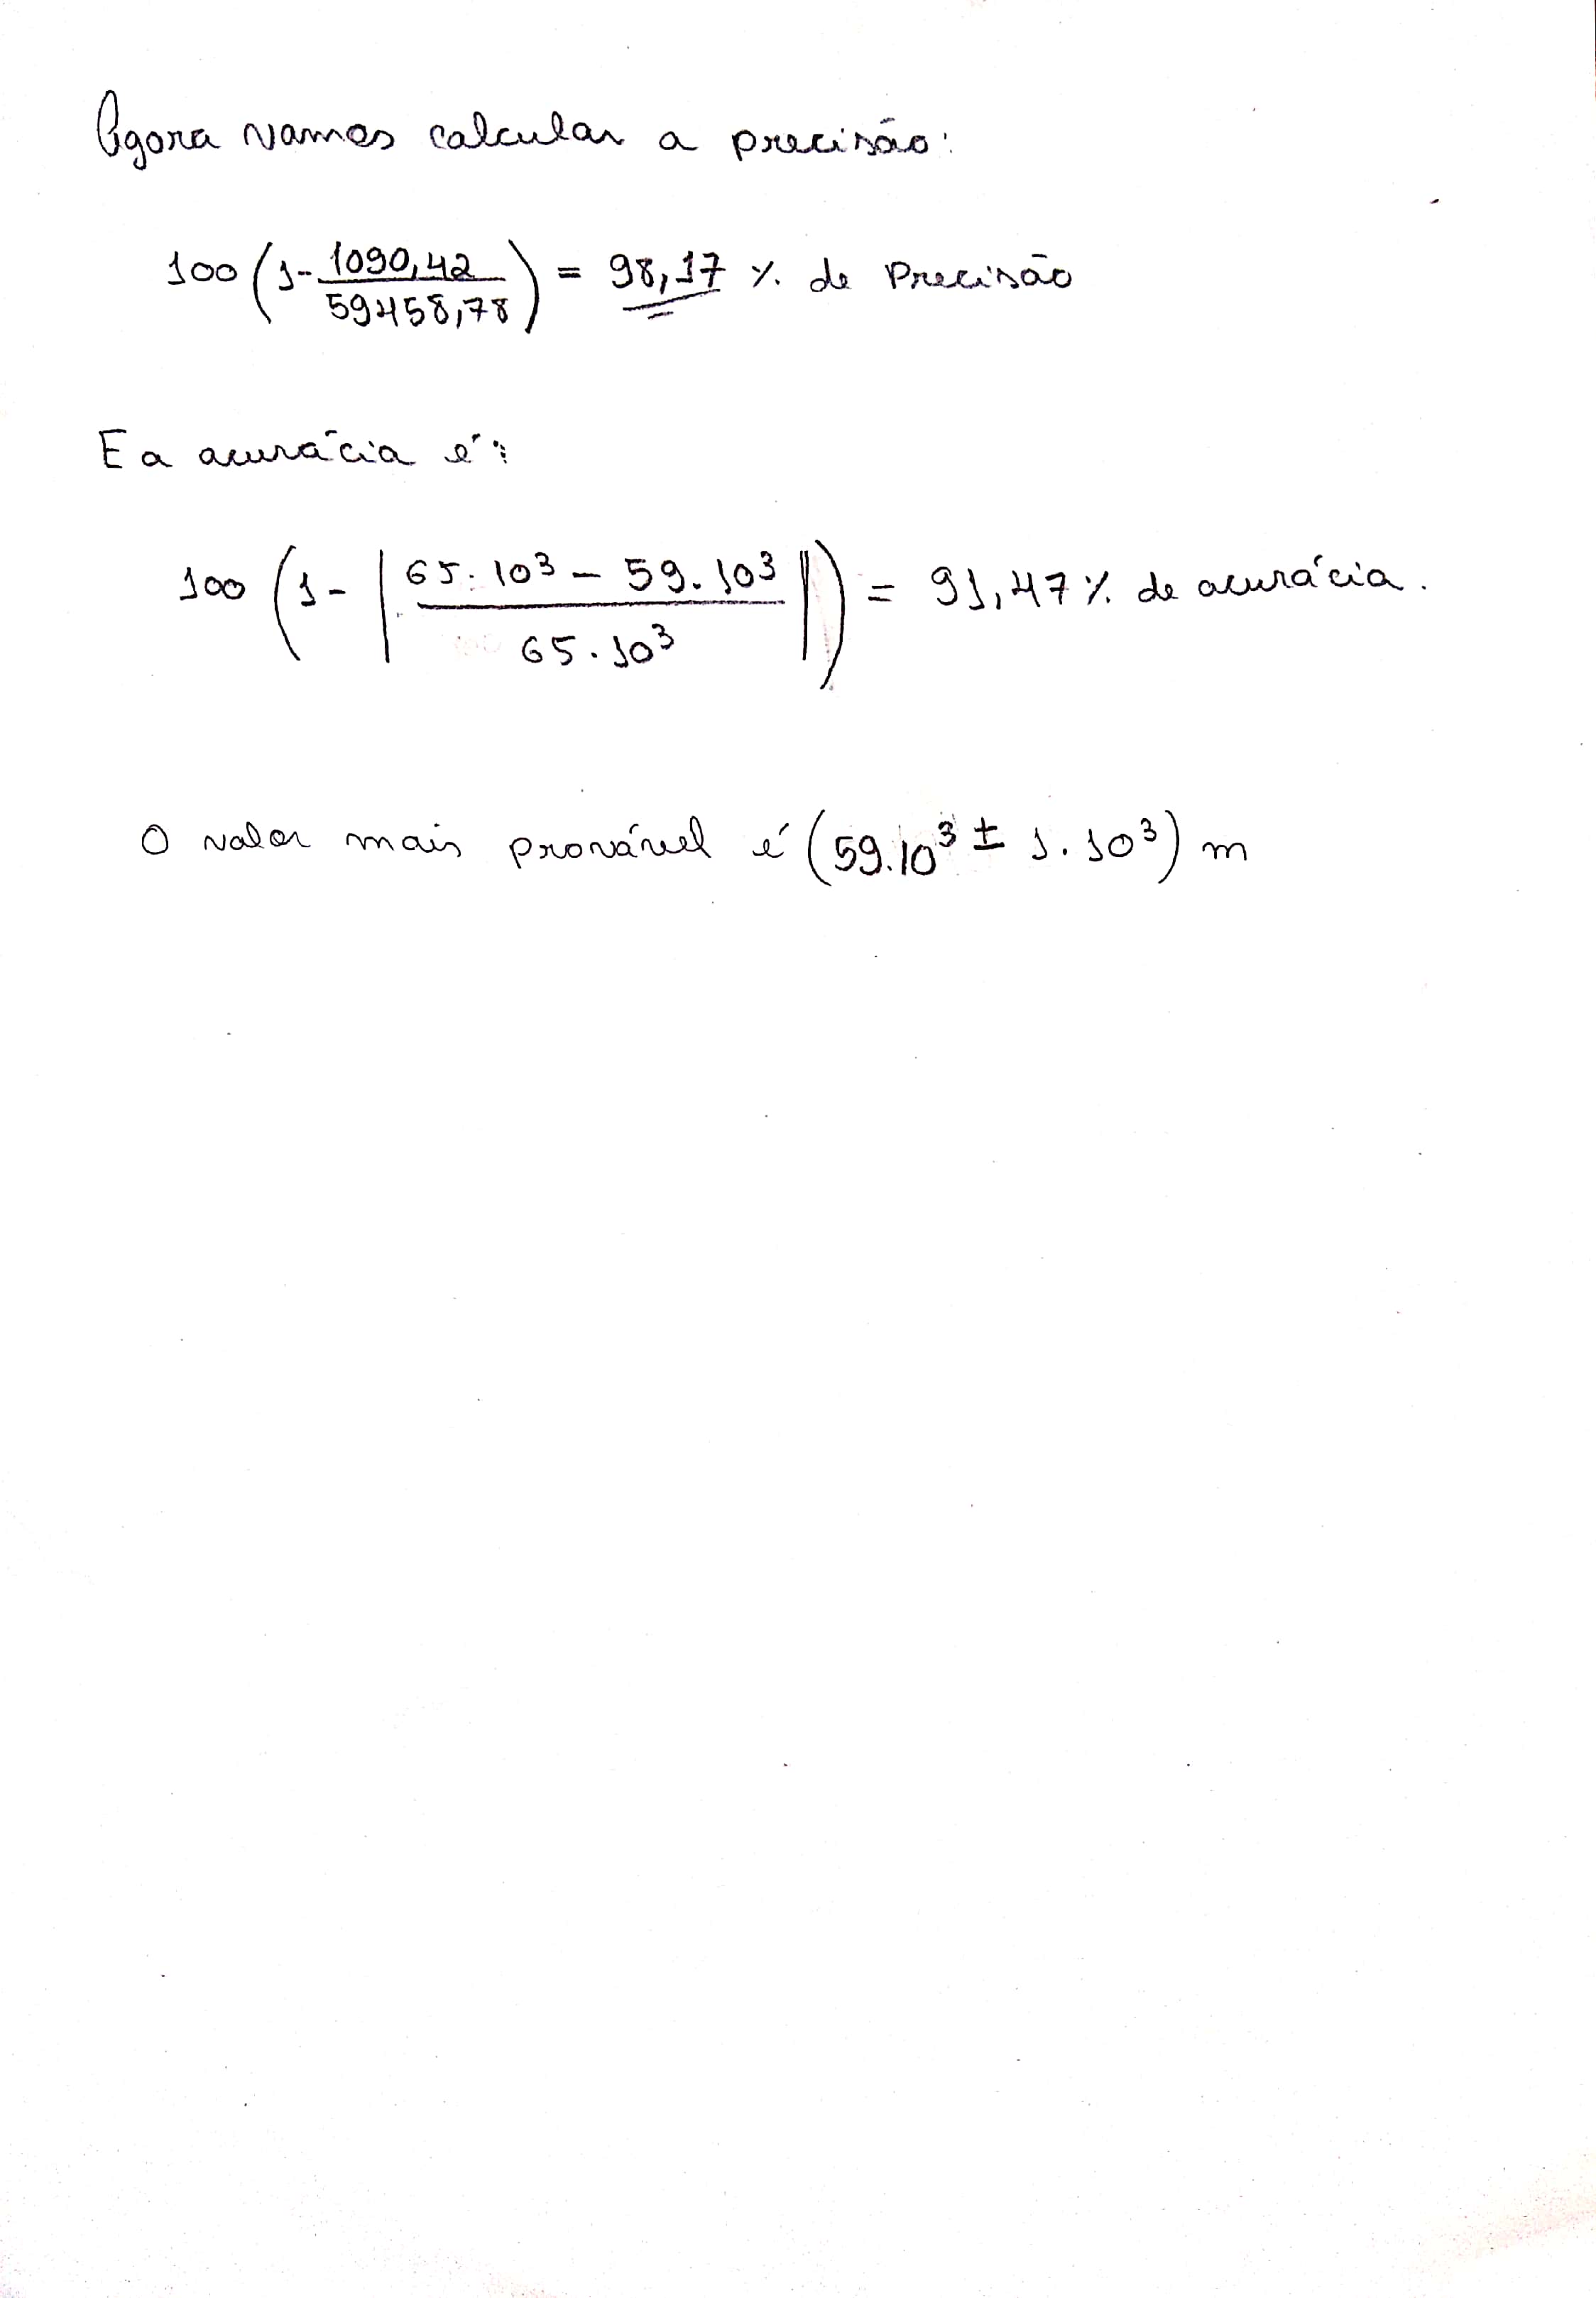 Agora vamos calcular a precisão:
100 (1 - 1090,42 / 59458,78) = 98,17 % de Precisão
E a acurácia é:
100 (1 - | 65.10³ - 59.10³ / 65.10³ |) = 91,47 % de acurácia.
O valor mais provável é (59.10³ ± 1.10³) m